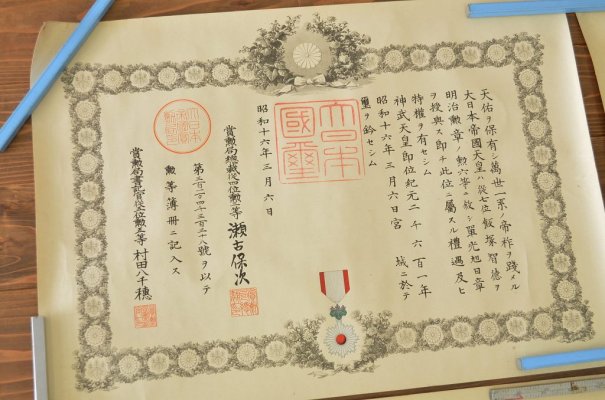 天佑ヲ保有シ萬世一系ノ帝祚ヲ踐メル
大日本帝國天皇ハ從七位飯塚智德ヲ
明治勲章ノ勲六等ニ敍シ單光旭日章
ヲ授與ス即チ此位ニ屬スル禮遇及ヒ
特權ヲ有セシム
神武天皇即位紀元二千六百一年
昭和十六年三月六日宮城ニ於テ
璽ヲ鈐セシム
大日本國璽
昭和十六年三月六日
賞勲局總裁從三位勲二等瀬古保次
第二百二万四千三百三十八號ヲ以テ
勲等簿冊ニ記入ス
賞勲局書記官從五位勲五等村田八千穂